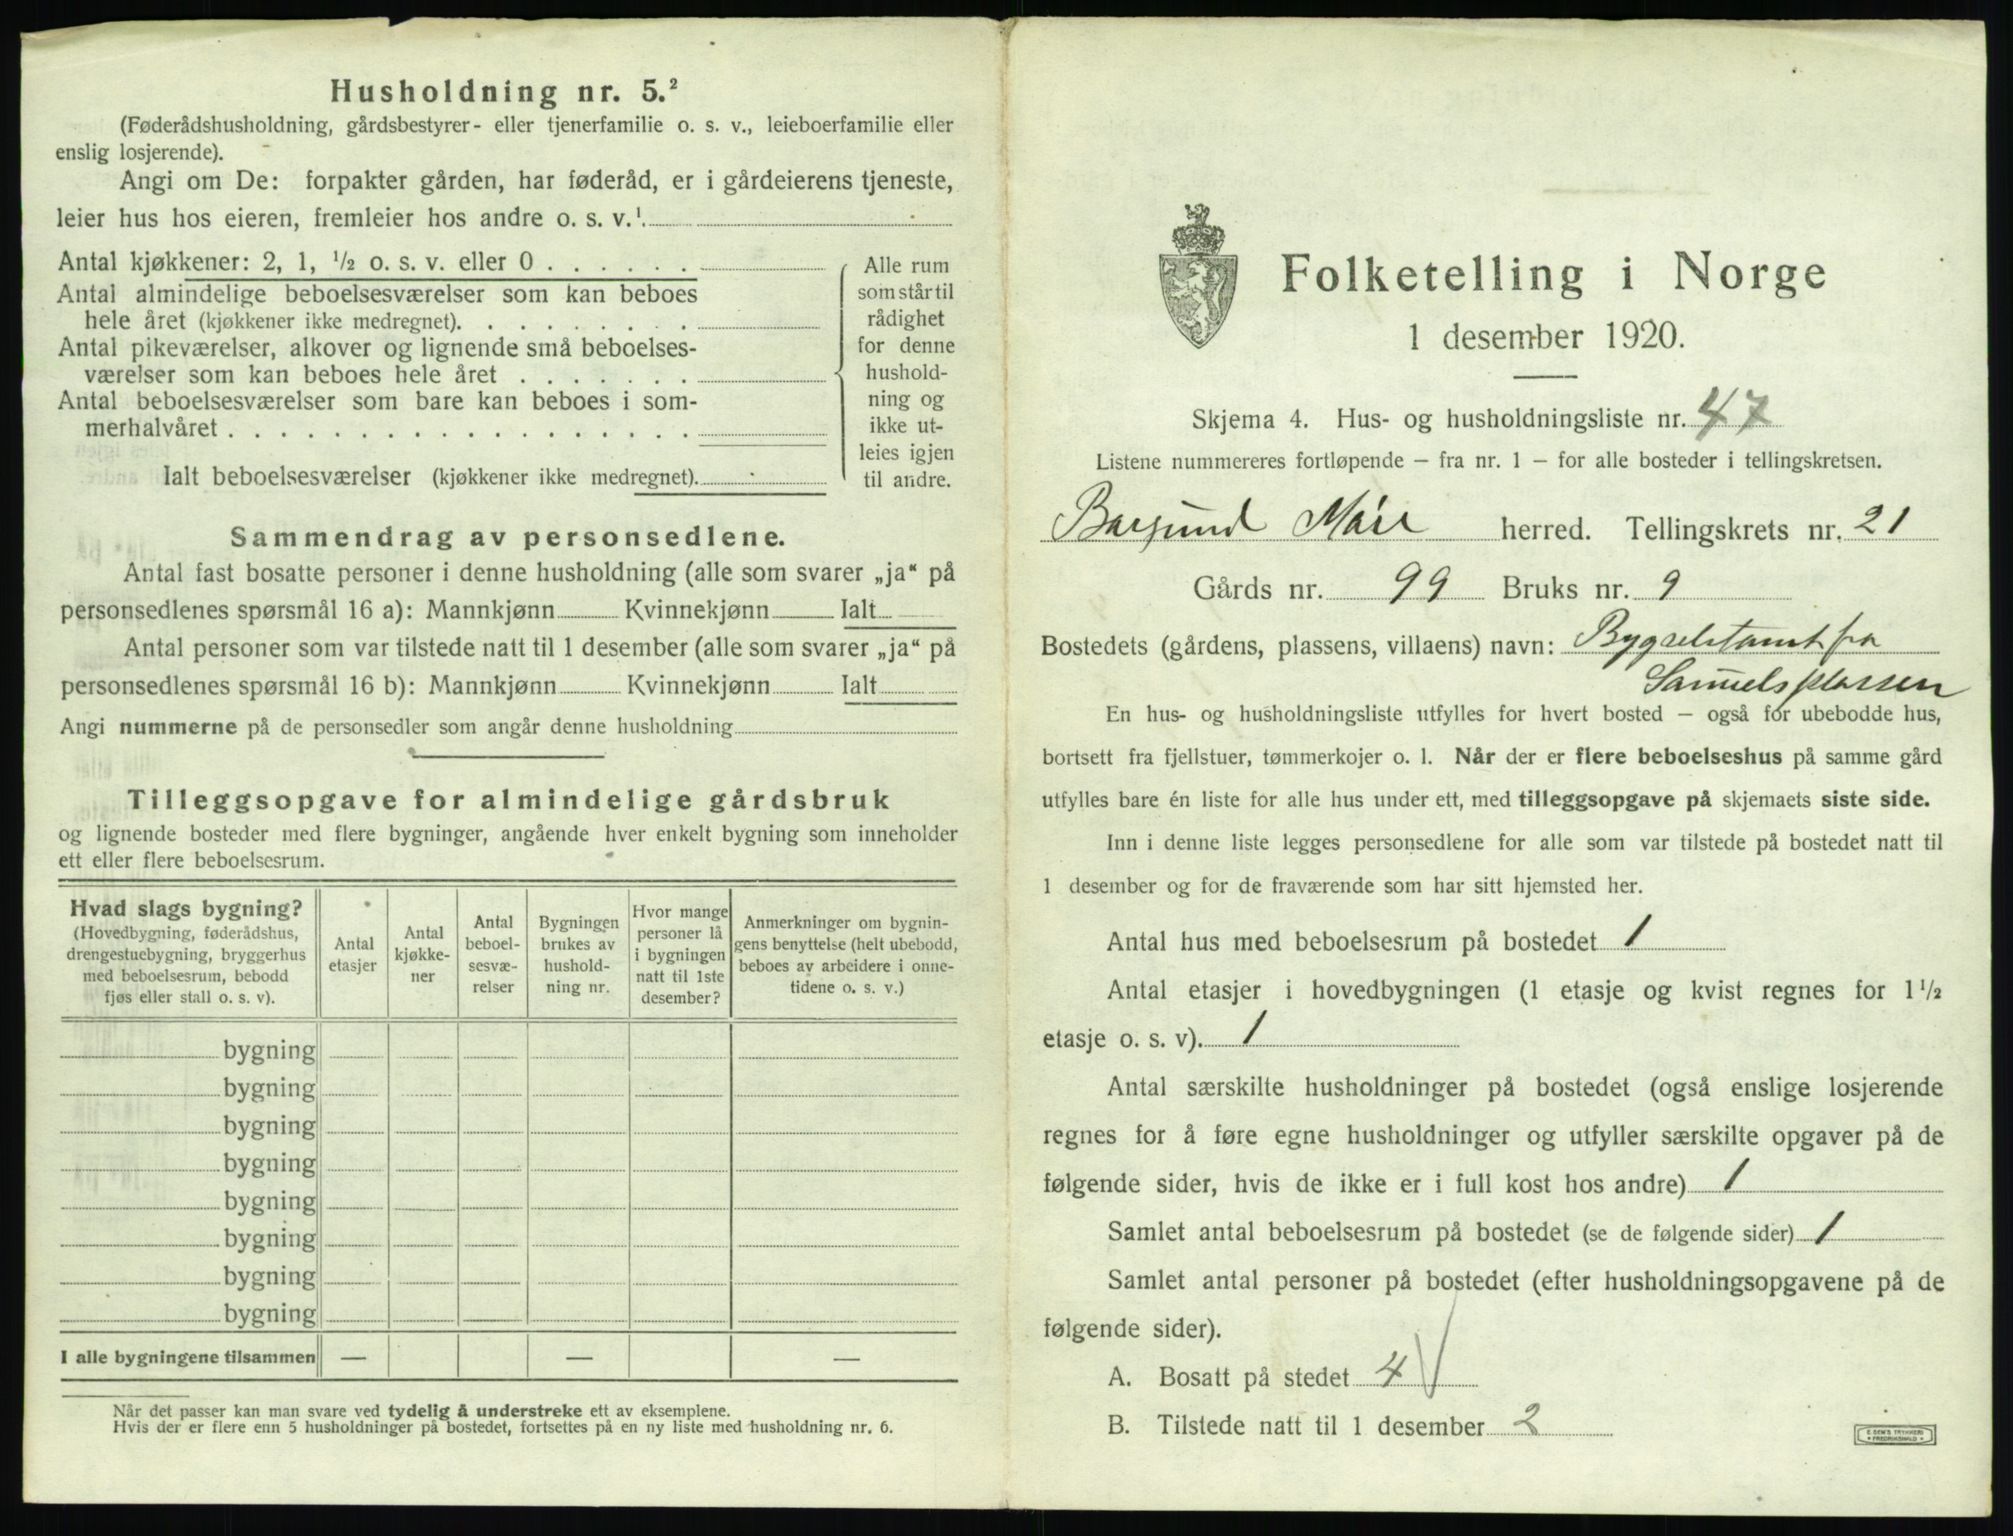 Husholdning nr. 5.²
(Føderådshusholdning, gårdsbestyrer- eller tjenerfamilie o. s. v., leieboerfamilie eller
enslig losjerende).
Angi om De: forpakter gården, har føderåd, er i gårdeierens tjeneste,
leier hus hos eieren, fremleier hos andre o. s. v.¹.
Antal kjøkkener: 2, 1, ½ o. s. v. eller 0 . . . . . .
Antal almindelige beboelsesværelser som kan beboes
hele året (kjøkkener ikke medregnet). . . . . . . . .
Antal pikeværelser, alkover og lignende små beboelses-
værelser som kan beboes hele året . . . . . . .
Antal beboelsesværelser som bare kan beboes i som-
merhalvåret . . . . . . . . . . . . . . . . . .
Ialt beboelsesværelser (kjøkkener ikke medregnet).
Alle rum
som står til
rådighet
for denne
hushold-
ning og
ikke ut-
leies igjen
til andre.
Sammendrag av personsedlene.
Antal fast bosatte personer i denne husholdning (alle som svarer „ja“ på
personsedlenes spørsmål 16 a): Mannkjønn Kvinnekjønn Ialt
Antal personer som var tilstede natt til 1 desember (alle som svarer „ja“ på
personsedlenes spørsmål 16 b): Mannkjønn Kvinnekjønn Ialt
Angi nummerne på de personsedler som angår denne husholdning
Tilleggsopgave for almindelige gårdsbruk
og lignende bosteder med flere bygninger, angående hver enkelt bygning som inneholder
ett eller flere beboelsesrum.
Hvad slags bygning?
(Hovedbygning, føderådshus,
drengestuebygning, bryggerhus
med beboelsesrum, bebodd
fjøs eller stall o. s. v).
Antal
etasjer
Antal
kjøkke-
ner
Antal
beboel-
sesvæ-
relser
Bygningen
brukes av
hushold-
ning nr.
Hvor mange
personer lå
i bygningen
natt til 1ste
desember?
Anmerkninger om bygnin-
gens benyttelse (helt ubebodd,
beboes av arbeidere i onne-
tidene o. s. v.)
bygning
bygning
bygning
bygning
bygning
bygning
bygning
bygning
I alle bygningene tilsammen — — —
Når det passer kan man svare ved tydelig å understreke ett av eksemplene.
Hvis der er flere enn 5 husholdninger på bostedet, fortsettes på en ny liste med husholdning nr. 6.
Folketelling i Norge
1 desember 1920.
Skjema 4. Hus- og husholdningsliste nr. 47
Listene nummereres fortløpende – fra nr. 1 – for alle bosteder i tellingskretsen.
Borgund Möre herred. Tellingskrets nr. 21
Gårds nr. 99 Bruks nr. 9
Bostedets (gårdens, plassens, villaens) navn: Bygselstomt fra
Samuelsplassen
En hus- og husholdningsliste utfylles for hvert bosted – også for ubebodde hus,
bortsett fra fjellstuer, tømmerkojer o. l. Når der er flere beboelseshus på samme gård
utfylles bare én liste for alle hus under ett, med tilleggsopgave på skjemaets siste side.
Inn i denne liste legges personsedlene for alle som var tilstede på bostedet natt til
1 desember og for de fraværende som har sitt hjemsted her.
Antal hus med beboelsesrum på bostedet 1
Antal etasjer i hovedbygningen (1 etasje og kvist regnes for 1½
etasje o. s. v). 1
Antal særskilte husholdninger på bostedet (også enslige losjerende
regnes for å føre egne husholdninger og utfyller særskilte opgaver på de
følgende sider, hvis de ikke er i full kost hos andre) 1
Samlet antal beboelsesrum på bostedet (se de følgende sider) 1
Samlet antal personer på bostedet (efter husholdningsopgavene på de
følgende sider).
A. Bosatt på stedet 4
B. Tilstede natt til 1 desember 2
E. SEM'S TRYKKERI
FREDRIKSHALD